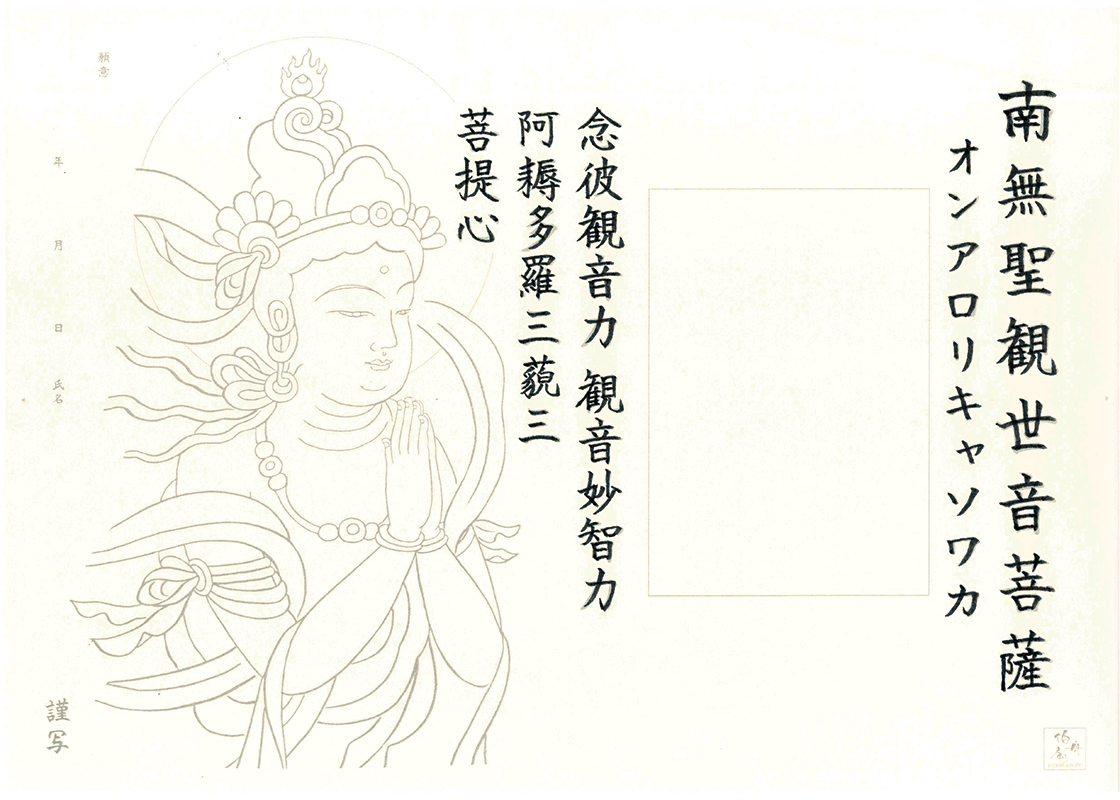 南無聖観世音菩薩
オンアロリキャソワカ
念彼観音力 観音妙智力
阿耨多羅三藐三
菩提心
願意
年 月 日 氏名
謹写